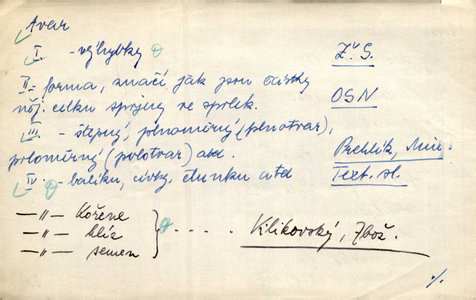 tvar
I. - výhybky Z. S.
II. - forma, značí jak jsou částky
něj. celku spojeny ve spolek. OSN
III. - štěpný, plnoměrný (plnotvar),
poloměrný (polotvar) atd. Prchlík, Min.
IV. - balíku, cívky, člunku atd Text. sl.
-"- kořene
-"- klíč
-"- semen } ..... Klikovský, Zbož.
./.